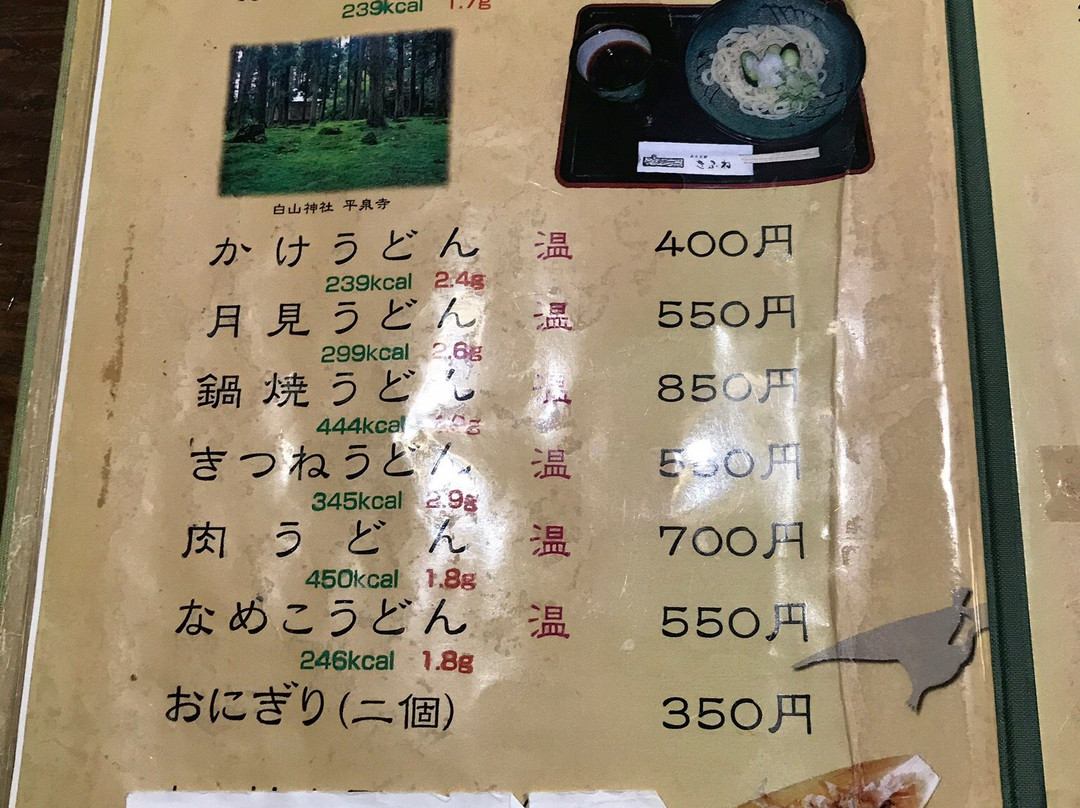 239kcal 1.7g
きふね
白山神社 平泉寺
かけうどん 温 400円
239kcal 2.4g
月見うどん 温 550円
299kcal 2.6g
鍋焼うどん 温 850円
444kcal
きつねうどん 温 550円
345kcal 2.9g
肉うどん 温 700円
450kcal 1.8g
なめこうどん 温 550円
246kcal 1.8g
おにぎり(二個) 350円